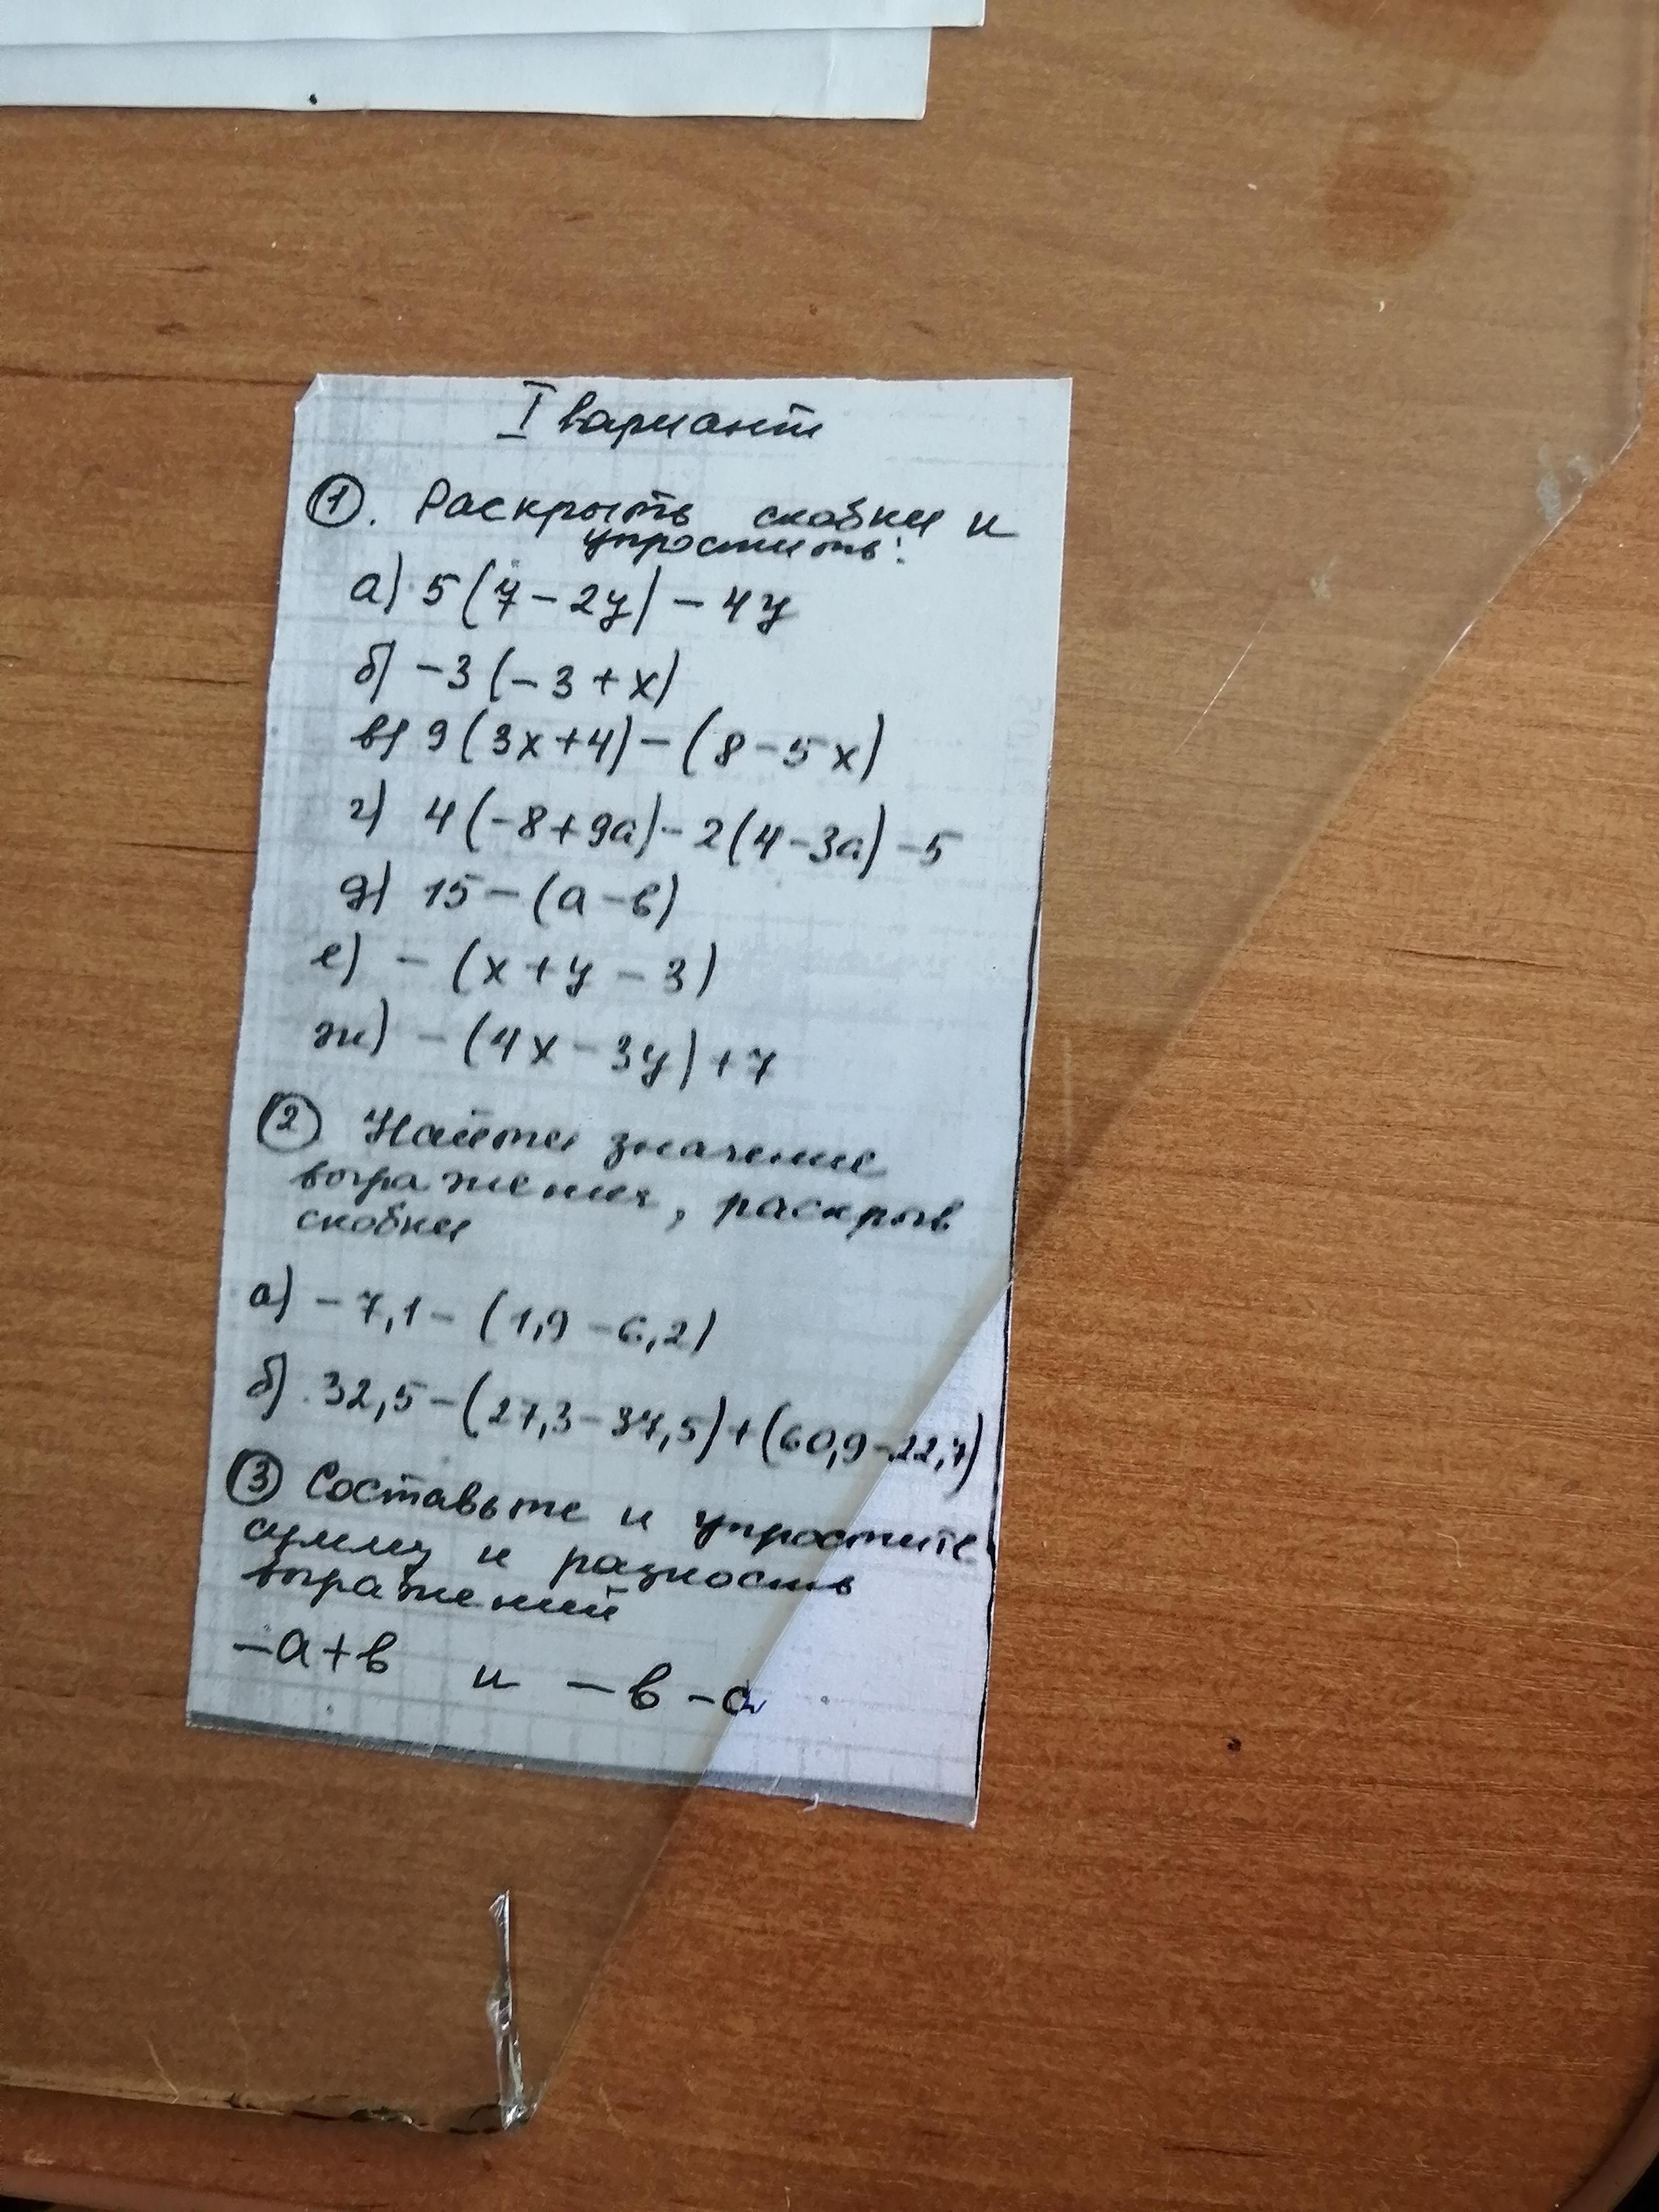 I вариант
①. Раскрыть скобки и
упростить:
а) 5(7-2y)-4y
б) -3(-3+x)
в) 9(3x+4)-(8-5x)
г) 4(-8+9a)-2(4-3a)-5
д) 15-(a-в)
е) -(x+y-3)
ж) -(4x-3y)+7
② Найти значение
выражения, раскрыв
скобки
а) -7,1-(1,9-6,2)
б) 32,5-(27,3-37,5)+(60,9-22,7)
③ Составьте и упростите
сумму и разность
выражений
-a+в и -в-a